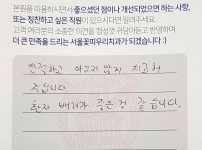 본원을 이용하시면서 좋으셨던 점이나 개선되었으면 하는 사항,
또는 칭찬하고 싶은 직원이 있으시다면 알려주세요.
고객 여러분의 소중한 의견을 정성껏 귀담아듣고 반영하여
더 큰 만족을 드리는 서울꽃피우리치과가 되겠습니다 :)
친절하고 아프지 않게 치료해
주십니다.
환자 배려가 좋은 것 같습니다.